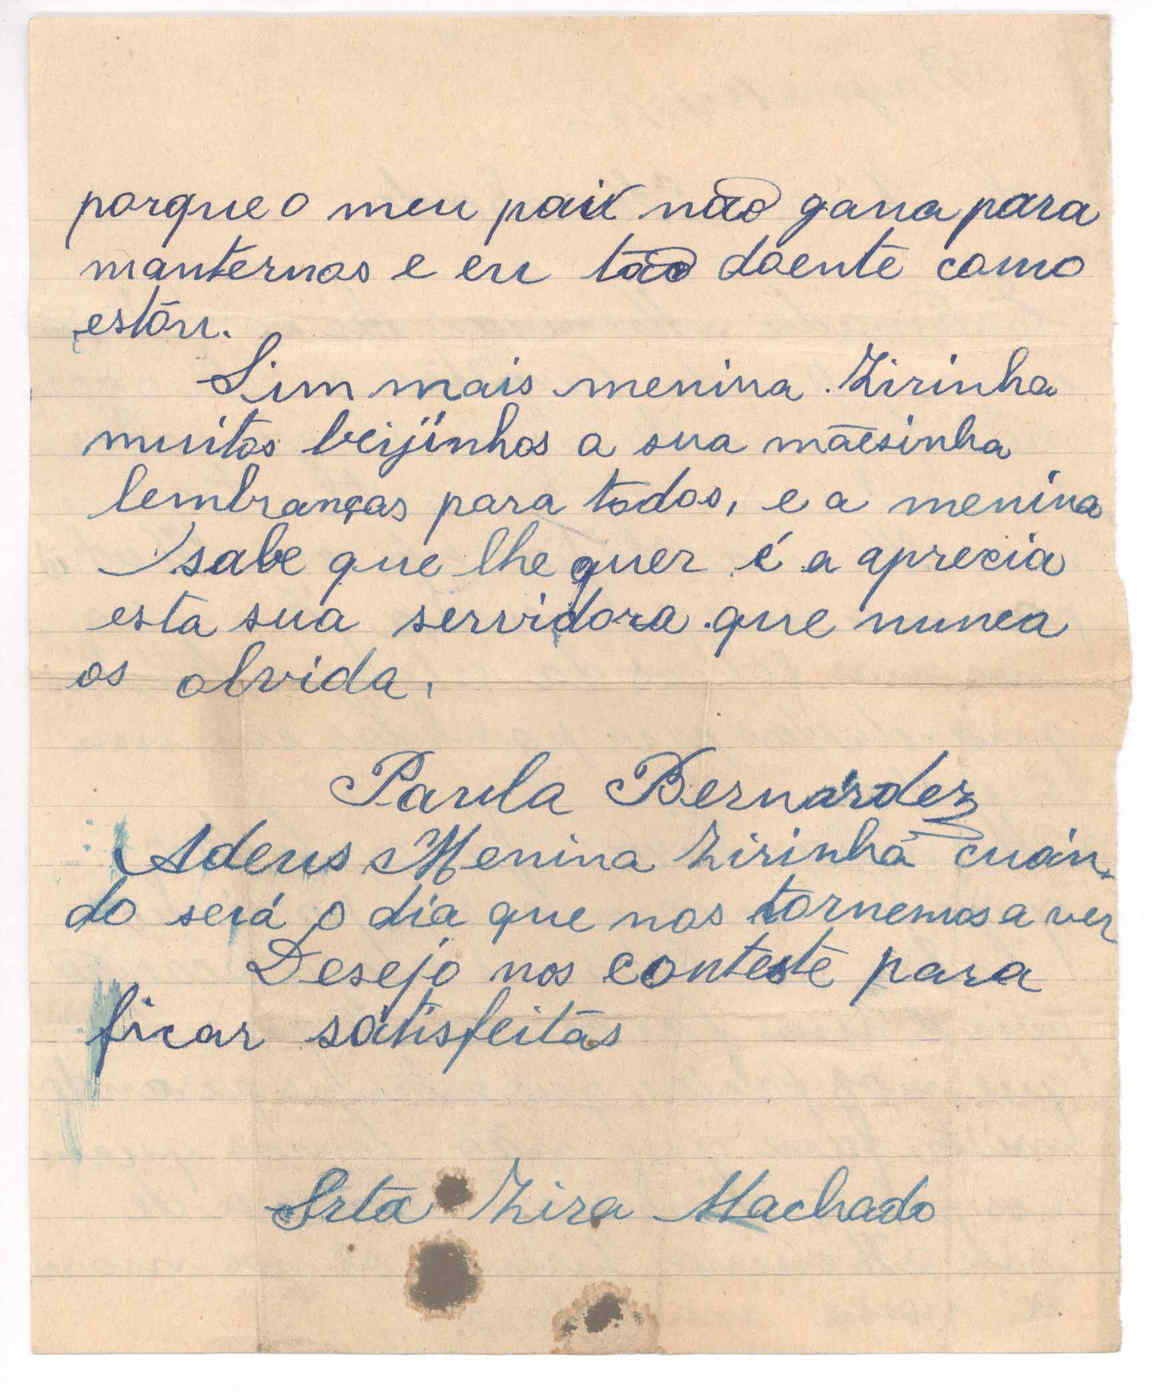 porque o meu paix não gana para
manternos e eu tão doente como
estóu.
Sim mais menina Zirinha
muitos beijinhos a sua mãesinha
lembranças para todos, e a menina
sabe que lhe quer é a aprecia
esta sua servidora que nunca
os olvida.
Paula Bernárdez
Adeus Menina Zirinha cuán-
do será o día que nos tornemos a ver
Desejo nos conteste para
ficar satisfeitas
Srta Zira Machado